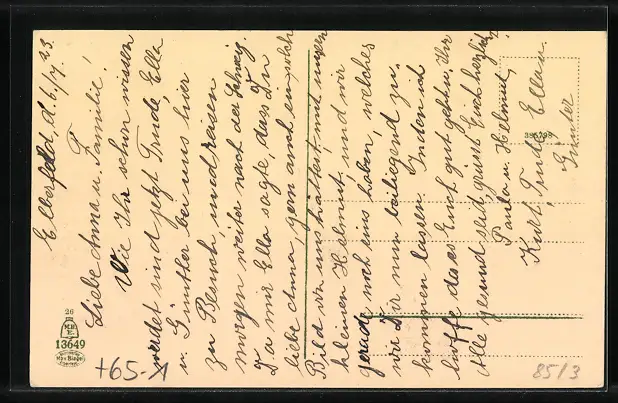 Elberfeld, d. 6/7. 23.
Liebe Anna u. Familie!
Wie Ihr schon wissen
werdet sind jetzt Trude Ella
u. Günther bei uns hier
zu Besuch, und reisen
morgen weiter nach der Schweiz.
Da mir Ella sagte, dass Du
liebe Anna, gern auch ein solch
Bild von uns hättest, mit unserm
kleinen Helmut, und wir
gerade noch eins haben, welches
wir Dir nun beiliegend zu-
kommen lassen. Indem ich
hoffe dass es Euch gut geht u. Ihr
Alle gesund seid, grüsst Euch herzlichst
Paula u. Helmut,
Kurt, Trude, Ella u.
Günter
395798
26
M.B.
E.
13649
+65-K
85/3